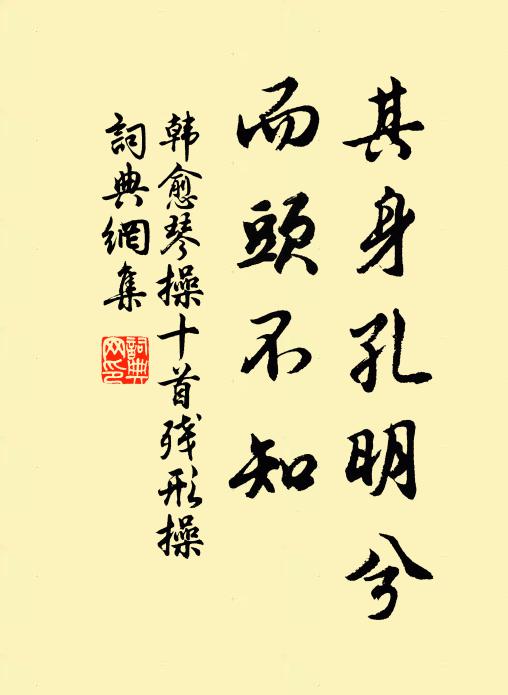 其身孔明兮
而頭不知
韩愈琴操十首残形操
詞典網集
詞典网印